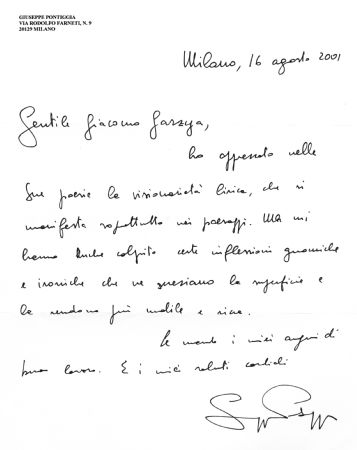 GIUSEPPE PONTIGGIA
VIA RODOLFO FARNETI, N. 9
20129 MILANO
Milano, 16 agosto 2001
Gentile Giacomo Garzya,
ho apprezzato nelle
Sue poesie la visionarietà lirica, che si
manifesta soprattutto nei paesaggi. Ma mi
hanno anche colpito certe inflessioni gnomiche
e ironiche che ne increspano la superficie e
la rendono più mobile e ricca.
Le mando i miei auguri di
buon lavoro. E i miei saluti cordiali